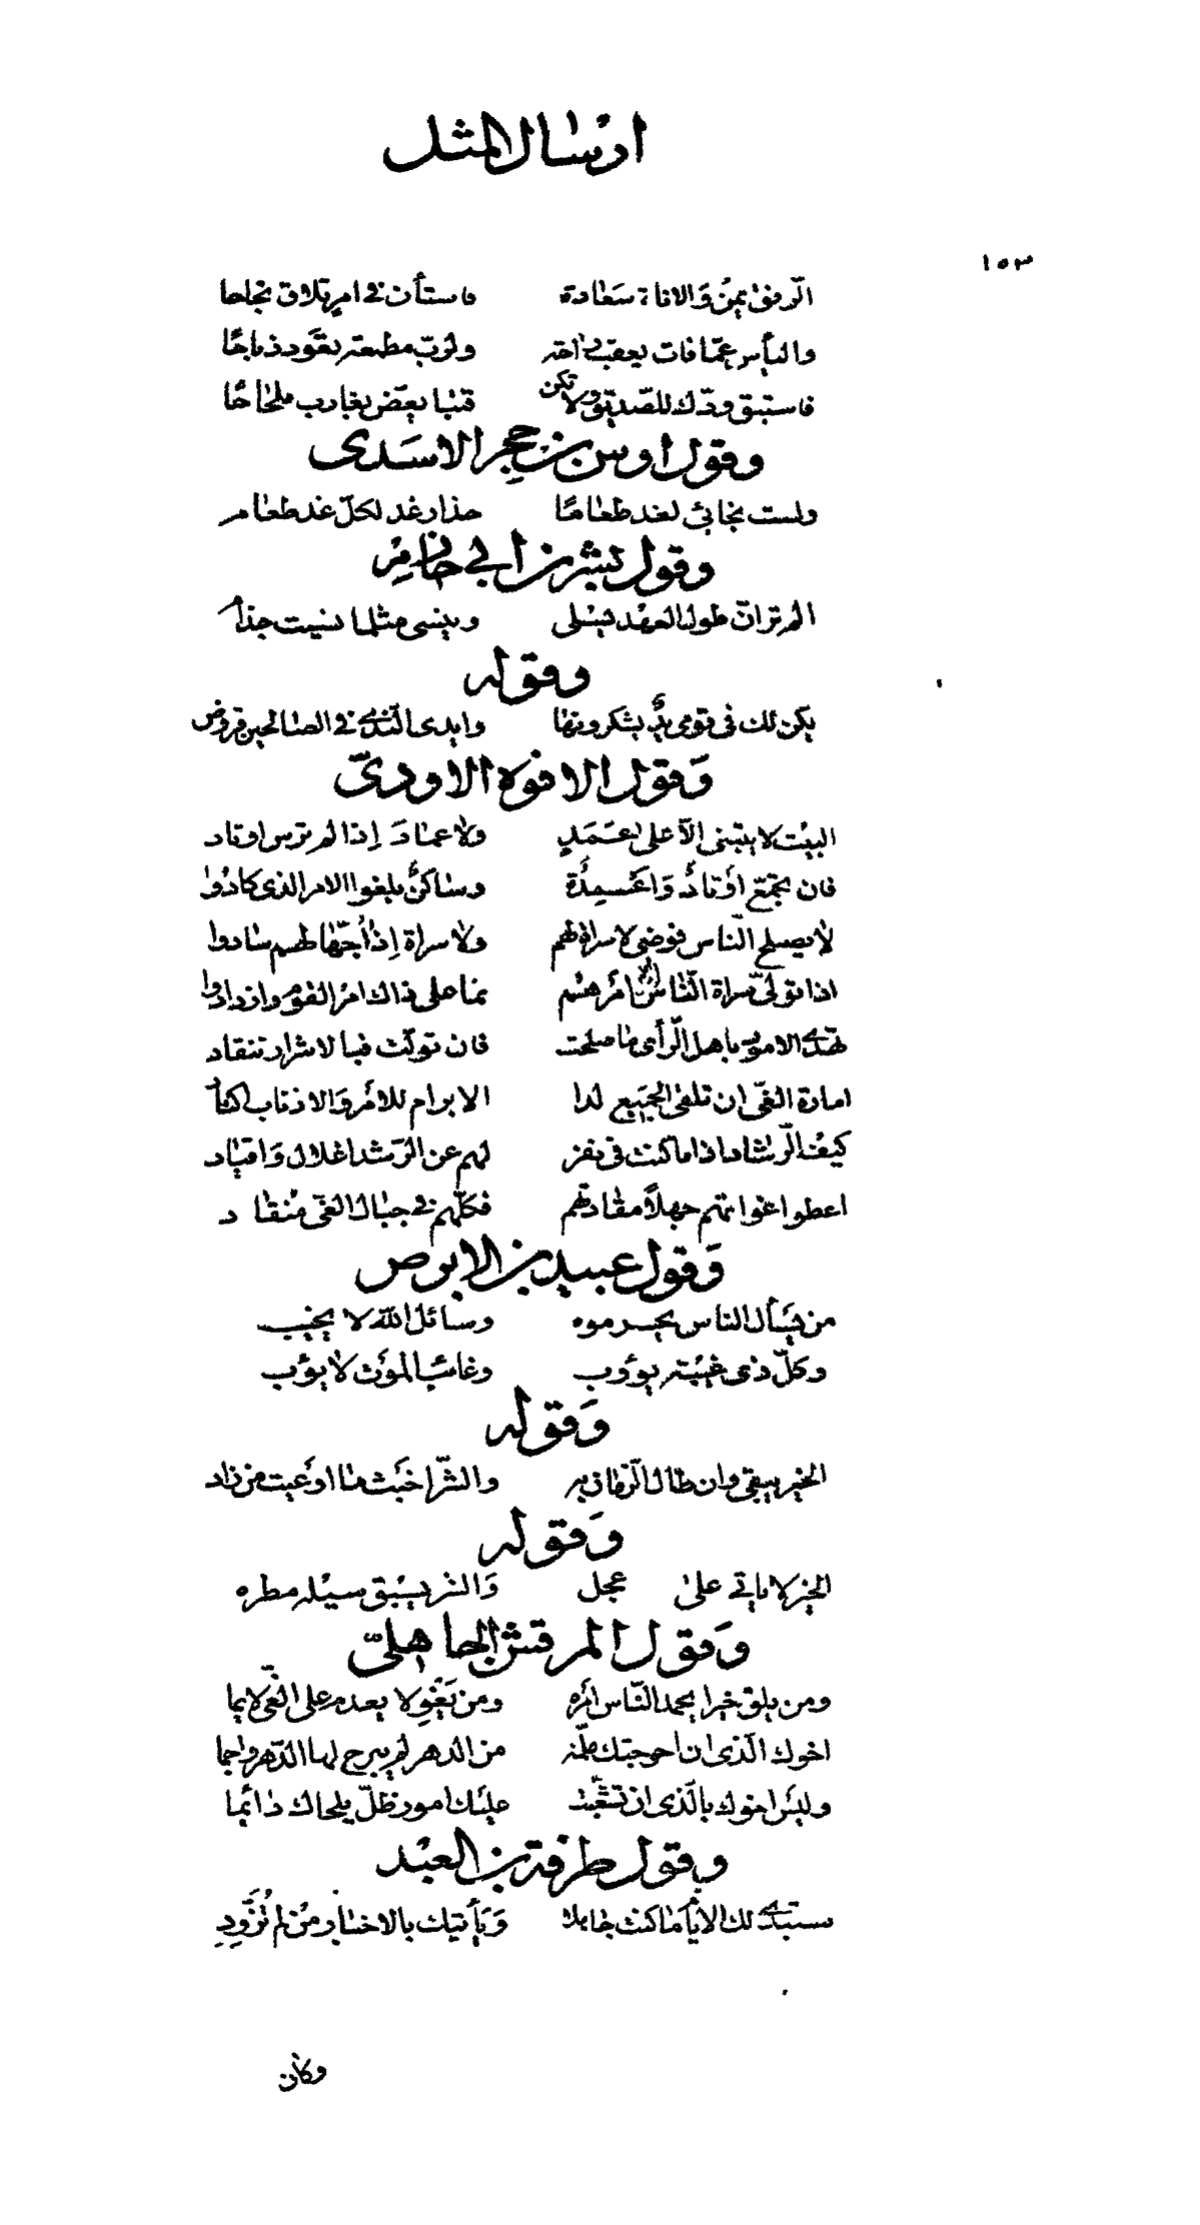 ارسال المثل
١٥٣
الرفق يمن والاناة سعادة فاستأن فى امر تلاق نجاحا
واليأس عمّا فات يعقب راحة ولربّ مطمعة تعود ذباحًا
فاستبق ودّك للصّديق ولا تكن قتبا يعضّ بغارب ملحاحًا
وقول اوس بن حجر الاسَدى
ولست بخابئ لغد طعامًا حذار غد لكلّ غد طعام
وقول بشر بن ابي خازم
الم تر انّ طول العهد يسلى وينسى مثلما نسيت جذام
وقوله
يكن لك فى قومى يدٌ يشكرونها وايدى النّدى فى الصالحين قروض
وَقول الافوه الاودىّ
البيْت لا يبتنى الّا على عَمَدٍ ولا عمادَ اِذا لم ترس اوتاد
فان تجمّع اَوْتادٌ وَاعْمِدَةٌ وساكنٌ بلغوا الامر الذى كادُوا
لا يصلح النّاس فوضى لا سراة لهم ولا سراة اِذا جهّالهم سادوا
اذا تولّى سراة النّاس امْرهم نما على ذاك امْر القوم وازدادوا
تهدى الامور باهل الرّأى ما صلحت فان تولّت فبالاشرار تنقاد
امارة الغىّ ان تلفى الجميع لدا الابرام للامْر وَالاذناب اكتاد
كيف الرّشاد اذا ما كنت فى نفر لهم عن الرّشد اغلال وَاقياد
اعطوا غواتهم جهلاً مقادتهم فكلّهم فى حبال الغىّ مُنقاد
وَقول عبيد بن الابرص
من يَسْأل الناس يحرموه وسائل اللّه لا يخيب
وكلّ ذى غيْبة يؤوب وغائب الموْت لا يؤب
وَقوله
الخير يبقى وان طال الزّمان به والشّر اخبَث ما اوعَيت من زاد
وَقوله
الخير لا ياتى على عجل وَالشر يسْبق سيْله مطره
وَقول المرقش الجاهلىّ
ومن يلق خيرا يحمد النّاس امْره ومن يَغْوِ لا يعدم على الغىّ لايما
اخوك الّذى ان احوجتك ملمّة من الدهر لم يبرح لها الدّهر واجما
وليْس اخوك بالّذى ان تشعّبت عليْك امور ظلّ يلحاك دائما
وقول طرفة بن العبْد
ستبدى لك الايّام ما كنت جاهلا وَيَأتيك بالاخبار مَن لم تُزَوّدِ
وكان